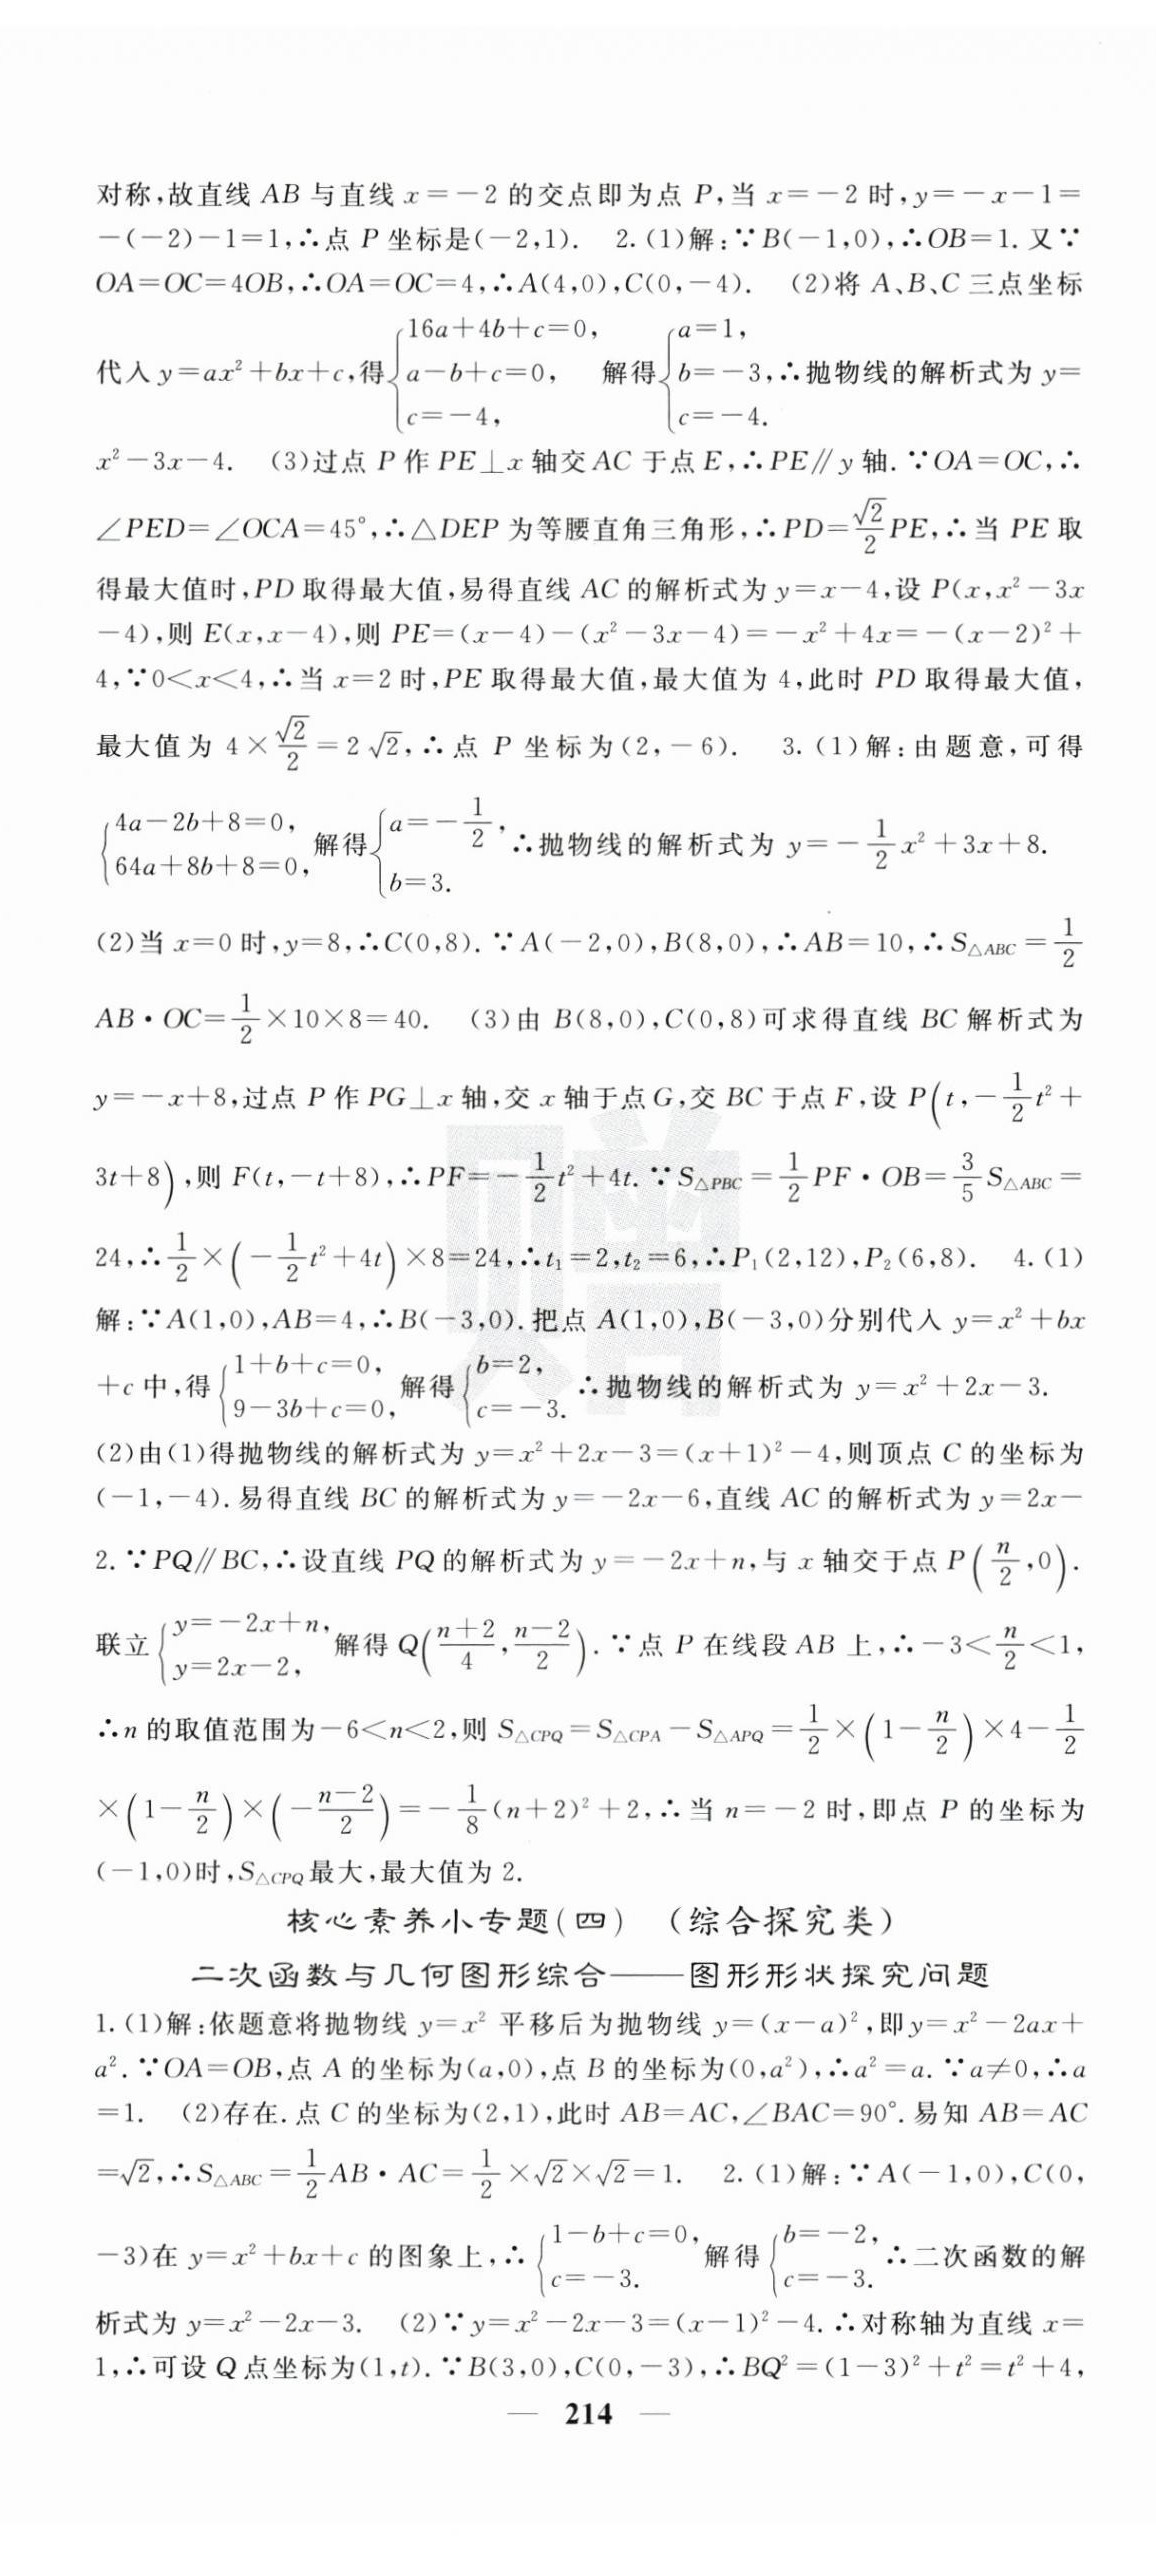 对称,故直线 AB 与直线 x=-2 的交点即为点 P,当 x=-2 时,y=-x-1=
-(-2)-1=1,∴点 P 坐标是(-2,1). 2.(1)解:∵B(-1,0),∴OB=1.又∵
OA=OC=4OB,∴OA=OC=4,∴A(4,0),C(0,-4). (2)将 A、B、C 三点坐标
代入 y=ax²+bx+c,得{16a+4b+c=0, a-b+c=0, c=-4, 解得{a=1, b=-3, c=-4. ∴抛物线的解析式为 y=
x²-3x-4. (3)过点 P 作 PE⊥x 轴交 AC 于点 E,∴PE∥y 轴.∵OA=OC,∴
∠PED=∠OCA=45°,∴△DEP 为等腰直角三角形,∴PD=√2/2 PE,∴当 PE 取
得最大值时,PD 取得最大值,易得直线 AC 的解析式为 y=x-4,设 P(x,x²-3x
-4),则 E(x,x-4),则 PE=(x-4)-(x²-3x-4)=-x²+4x=-(x-2)²+
4,∵0<x<4,∴当 x=2 时,PE 取得最大值,最大值为 4,此时 PD 取得最大值,
最大值为 4×√2/2=2√2,∴点 P 坐标为(2,-6). 3.(1)解:由题意,可得
{4a-2b+8=0, 64a+8b+8=0, 解得{a=-1/2, b=3. ∴抛物线的解析式为 y=-1/2x²+3x+8.
(2)当 x=0 时,y=8,∴C(0,8).∵A(-2,0),B(8,0),∴AB=10,∴S△ABC=1/2
AB·OC=1/2×10×8=40. (3)由 B(8,0),C(0,8)可求得直线 BC 解析式为
y=-x+8,过点 P 作 PG⊥x 轴,交 x 轴于点 G,交 BC 于点 F,设 P(t,-1/2t²+
3t+8),则 F(t,-t+8),∴PF=-1/2t²+4t.∵S△PBC=1/2PF·OB=3/5S△ABC=
24,∴1/2×(-1/2t²+4t)×8=24,∴t₁=2,t₂=6,∴P₁(2,12),P₂(6,8). 4.(1)
解:∵A(1,0),AB=4,∴B(-3,0).把点 A(1,0),B(-3,0)分别代入 y=x²+bx
+c 中,得{1+b+c=0, 9-3b+c=0, 解得{b=2, c=-3. ∴抛物线的解析式为 y=x²+2x-3.
(2)由(1)得抛物线的解析式为 y=x²+2x-3=(x+1)²-4,则顶点 C 的坐标为
(-1,-4).易得直线 BC 的解析式为 y=-2x-6,直线 AC 的解析式为 y=2x-
2.∵PQ∥BC,∴设直线 PQ 的解析式为 y=-2x+n,与 x 轴交于点 P(n/2,0).
联立{y=-2x+n, y=2x-2, 解得 Q((n+2)/4,(n-2)/2).∵点 P 在线段 AB 上,∴-3<n/2<1,
∴n 的取值范围为-6<n<2,则 S△CPQ=S△CPA-S△APQ=1/2×(1-n/2)×4-1/2
×(1-n/2)×(-(n-2)/2)=-1/8(n+2)²+2,∴当 n=-2 时,即点 P 的坐标为
(-1,0)时,S△CPQ最大,最大值为 2.
核心素养小专题(四) (综合探究类)
二次函数与几何图形综合——图形形状探究问题
1.(1)解:依题意将抛物线 y=x² 平移后为抛物线 y=(x-a)²,即 y=x²-2ax+
a².∵OA=OB,点 A 的坐标为(a,0),点 B 的坐标为(0,a²),∴a²=a.∵a≠0,∴a
=1. (2)存在.点 C 的坐标为(2,1),此时 AB=AC,∠BAC=90°.易知 AB=AC
=√2,∴S△ABC=1/2AB·AC=1/2×√2×√2=1. 2.(1)解:∵A(-1,0),C(0,
-3)在 y=x²+bx+c 的图象上,∴{1-b+c=0, c=-3. 解得{b=-2, c=-3. ∴二次函数的解
析式为 y=x²-2x-3. (2)∵y=x²-2x-3=(x-1)²-4.∴对称轴为直线 x=
1,∴可设 Q 点坐标为(1,t).∵B(3,0),C(0,-3),∴BQ²=(1-3)²+t²=t²+4,
— 214 —
赠